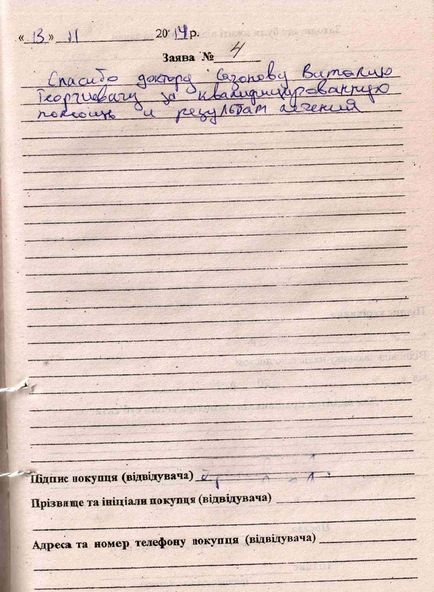 «13» 11 2014 р.
Заява № 4
Спасибо доктору Сазонову Виталию
Георгиевичу за квалифицированную
помощь и результат лечения
Підпис покупця (відвідувача)
Прізвище та ініціали покупця (відвідувача)
Адреса та номер телефону покупця (відвідувача)